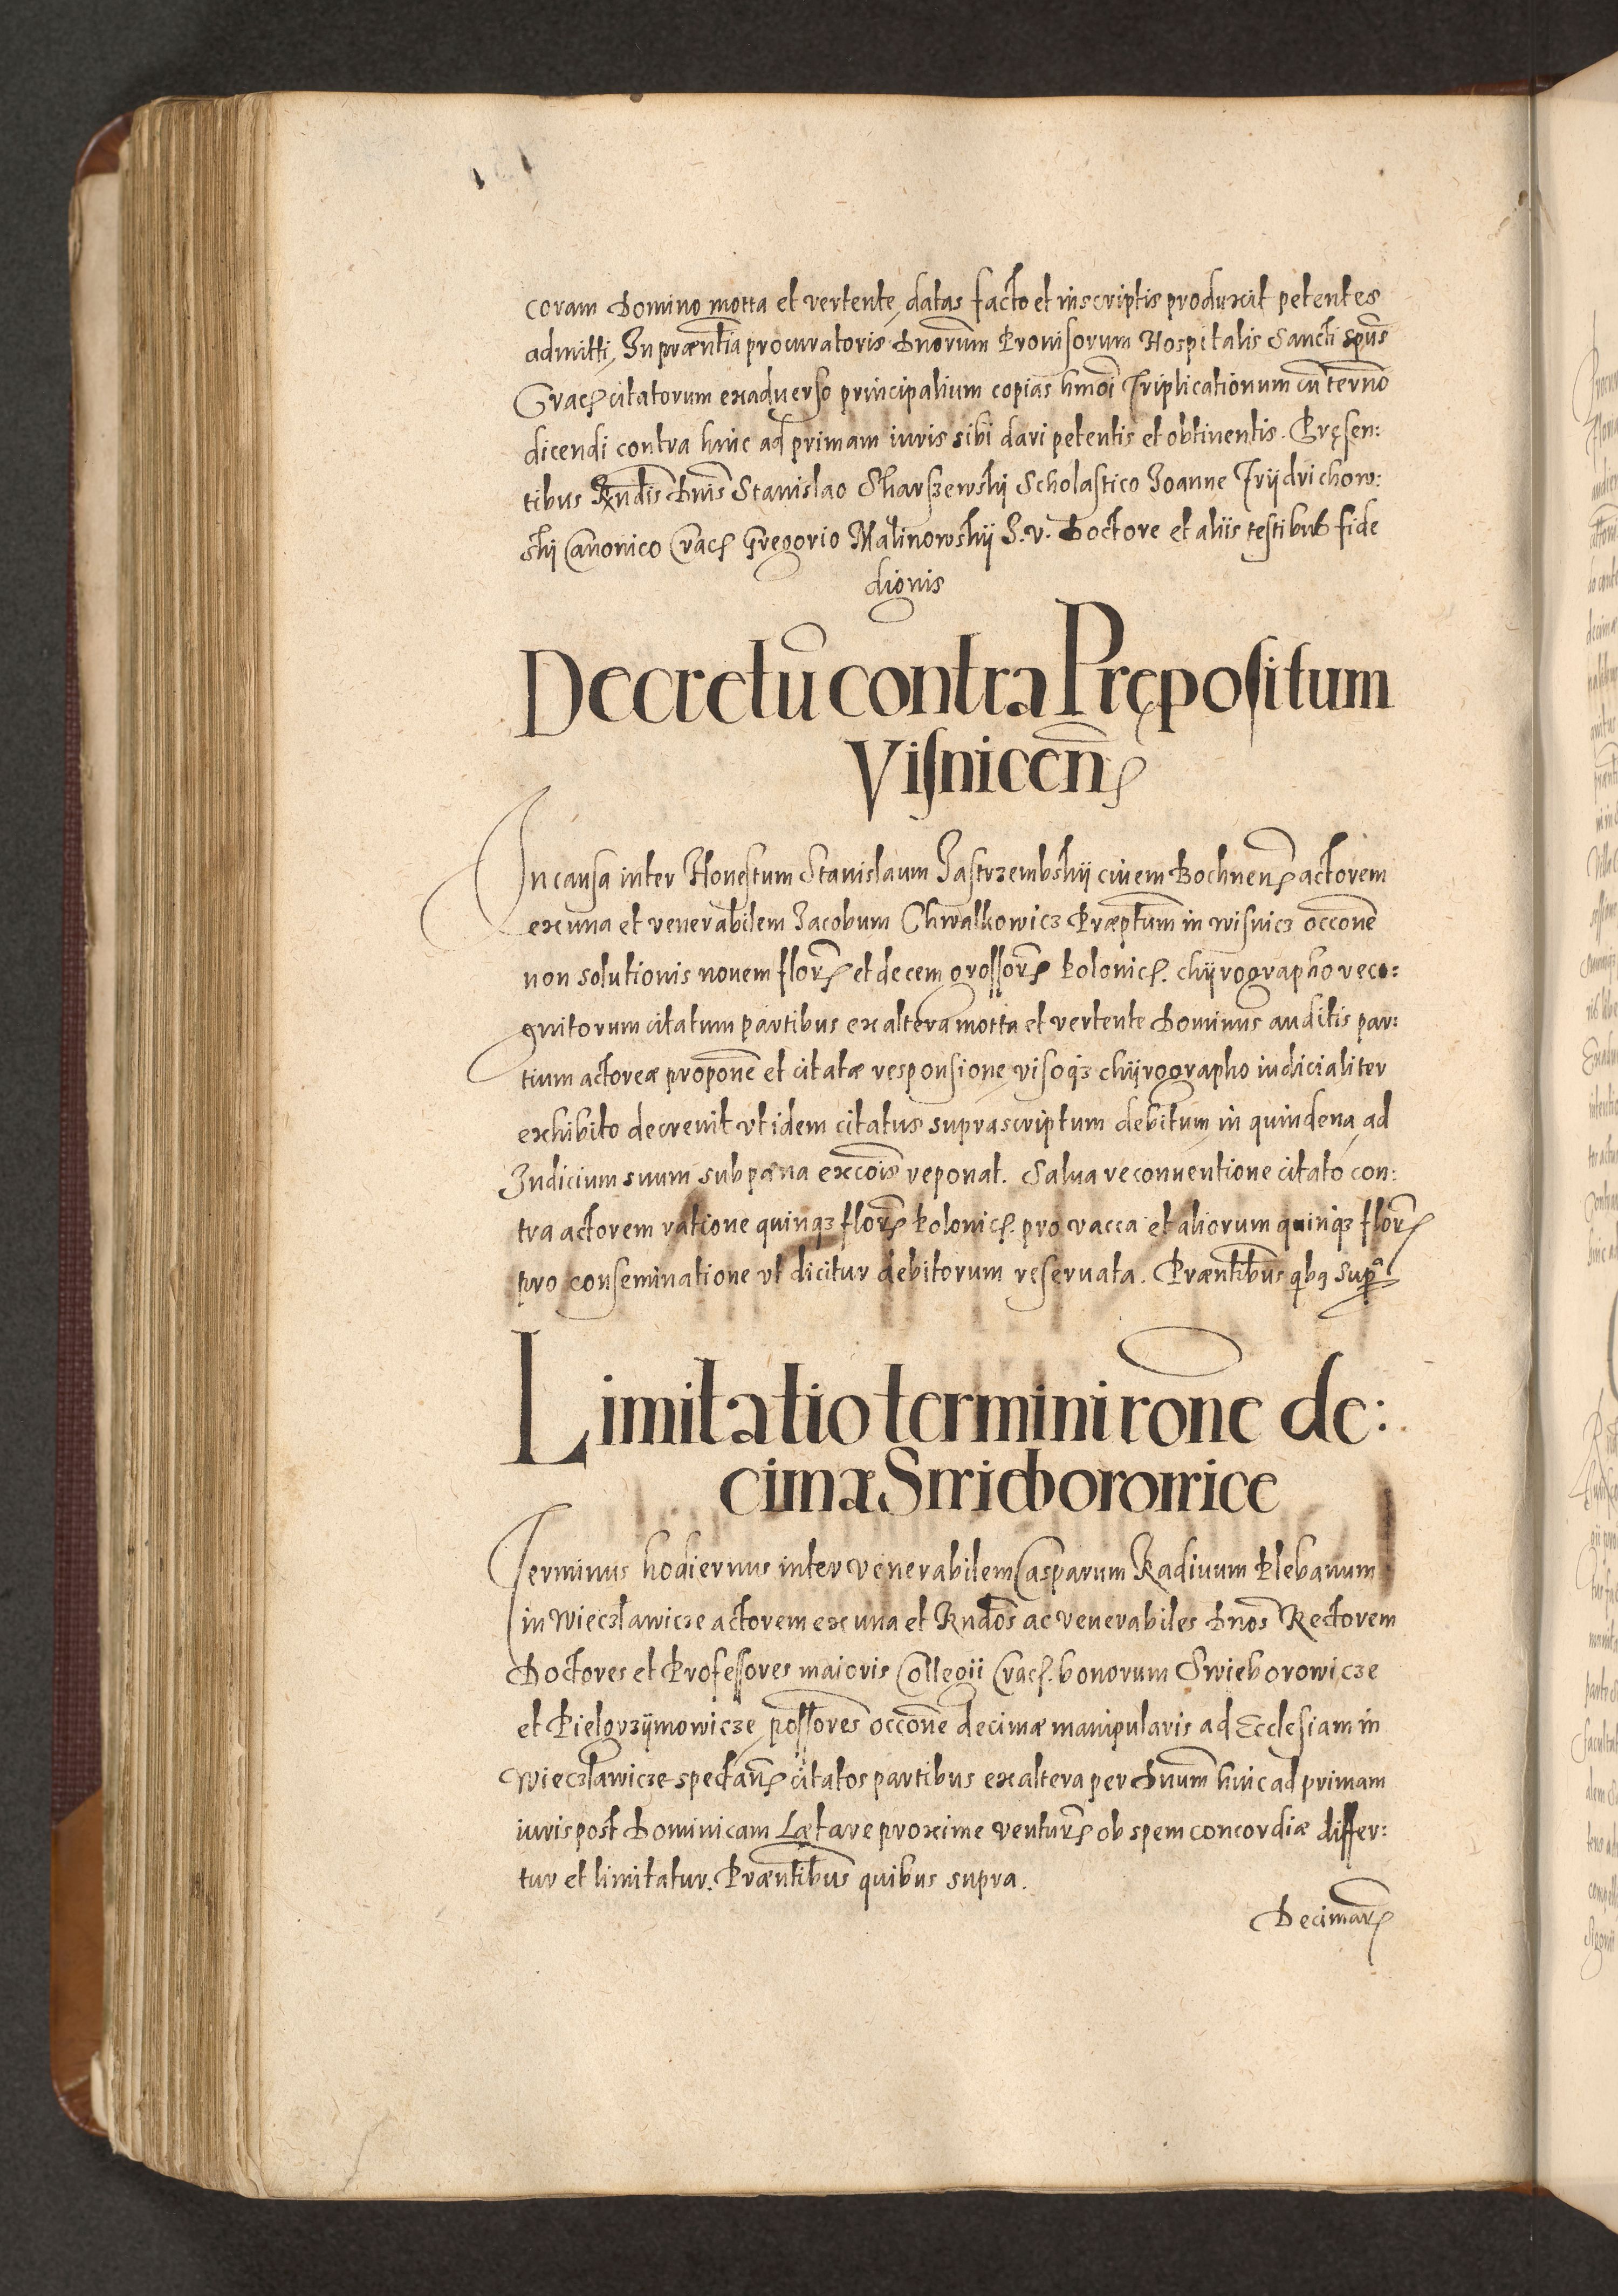 coram Domino motta et vertente, datas facto et inscriptis produxit petentes
admitti, In præntia procuratoris Dnorum Prouisorum Hospitalis Sancti Spūs
Crac. citatorum exaduerso principalium copias hmōi Triplicationum cū termō
dicendi contra hinc ad primam iuris sibi dari petentis et obtinentis. Pręsen:
tibus Rndīs Dnīs Stanislao Skarszewskij Scholastico Joanne Frijdrichow:
skij Canonico Crac. Gregorio Malinowskij J. v. Doctore et aliis testibus fide
dignis
Decretū contra Prępositum
Visnicen̄.
In causa inter Honestum Stanislaum Jastrzembskij ciuem Bochnen̄. actorem
ex una et venerabilem Jacobum Chwalkowicz Præptum in wisnicz occone
non solutionis nouem flor. et decem grossor. Polonic. chijrographo reco:
gnitorum citatum partibus ex altera motta et vertente Dominus auditis par:
tium actoreæ propone et citatæ responsione, visoqz chijrographo iudicialiter
exhibito decreuit vt idem citatus suprascriptum debitum, in quindena, ad
Judicium suum sub pæna excōis reponat. Salua reconuentione citato con:
tra actorem ratione quinqz flor. Polonic. pro vacca et aliorum quinqz flor.
pro conseminatione vt dicitur debitorum reseruata. Præntibus qbq supr̄
Limitatio termini rone de:
cimæ Swieborowice
Terminus hodiernus inter venerabilem Casparum Radiuum Plebanum
in Wieczlawicze actorem ex una et Rndōs ac venerabiles Dnōs Rectorem
Doctores et Professores maioris Collegii Crac. bonorum Swieborowicze
et Pielgrzijmowicze, possores occone decimæ manipularis ad Ecclesiam in
Wieczlawicze spectan̄. citatos partibus ex altera per Dnum hinc ad primam
iuris post Dominicam Lætare proxime ventur. ob spem concordiæ differ:
tur et limitatur. Præntibus quibus supra.
Decimar.